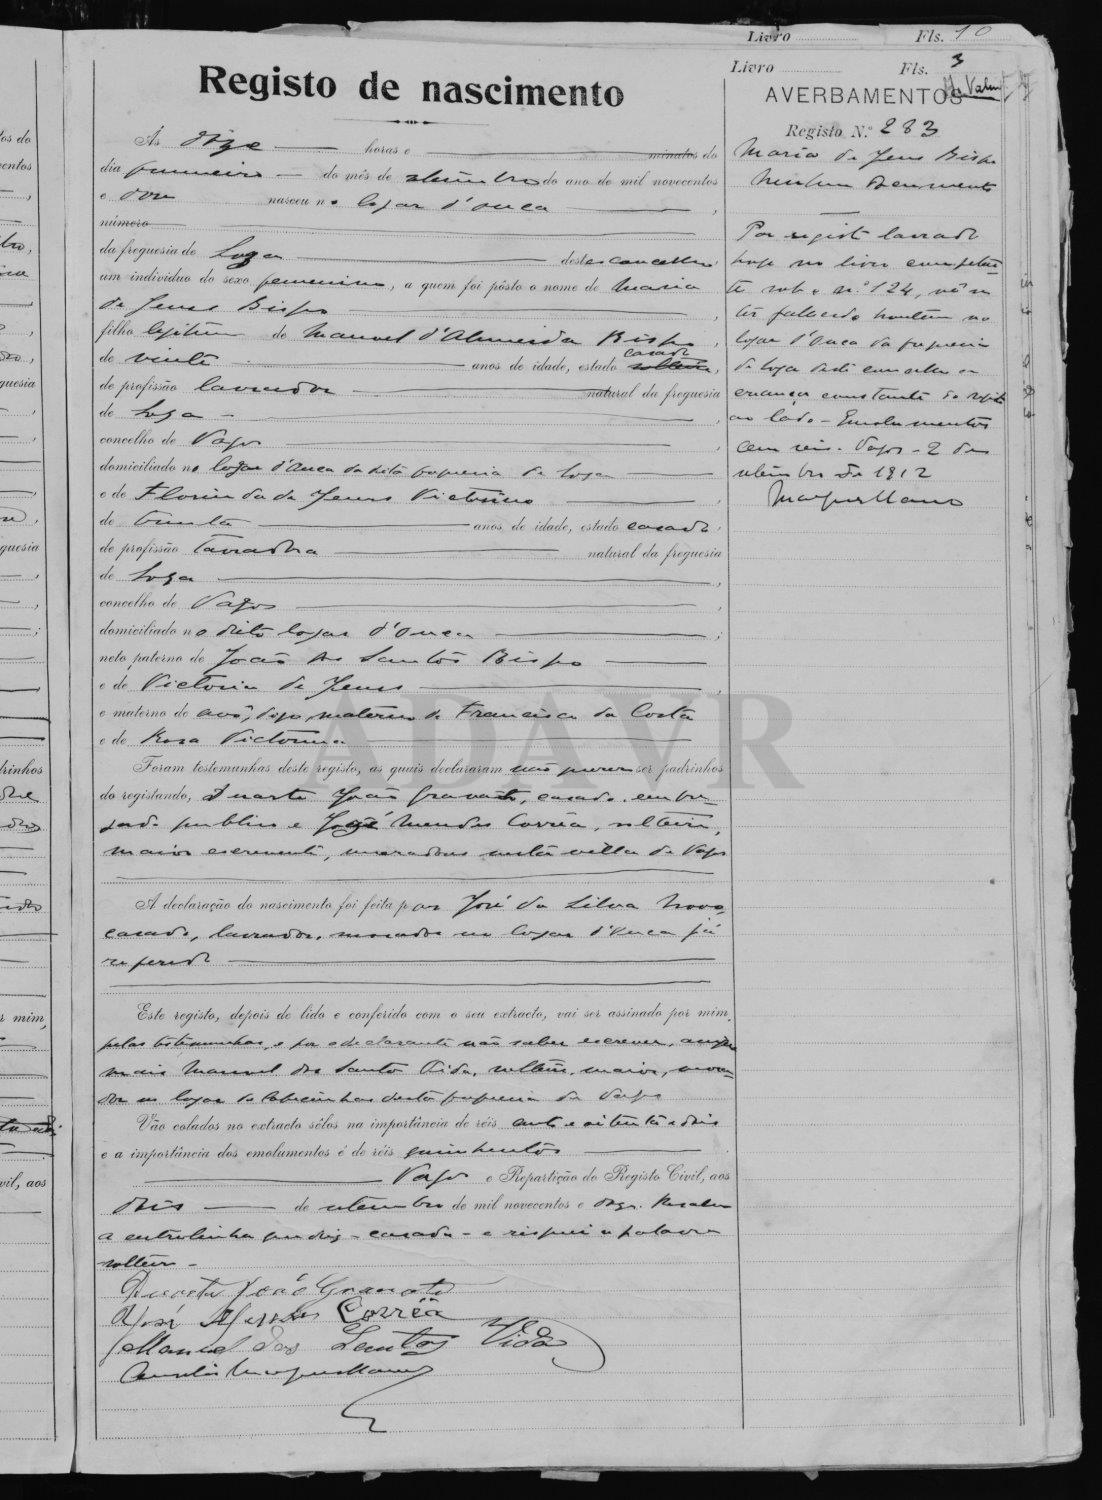 Livro Fls. 10
Livro Fls. 3
Registo de nascimento
AVERBAMENTOS
Registo N.º 283
Às onze horas e minutos do
dia primeiro do mês de setembro do ano de mil novecentos
e doze nasceu no logar d'Ouca ,
número
da freguesia de Soza deste concelho
um indivíduo do sexo feminino, a quem foi pôsto o nome de Maria
de Jesus Bispo ,
filho legitimo de Manuel d'Almeida Bispo ,
de vinte anos de idade, estado solteiro casado,
de profissão lavrador natural da freguesia
de Soza ,
concelho de Vagos ,
domiciliado no logar d'Ouca da dita freguesia de Soza
e de Florinda de Jesus Victorino ,
de trinta anos de idade, estado casada,
de profissão natural da freguesia
de Soza ,
concelho de Vagos ,
domiciliado no dito logar d'Ouca ;
neto paterno de João dos Santos Bispo
e de Victoria de Jesus ,
e materno de avô, digo, materno de Francisco da Costa
e de Rosa Victorina
Foram testemunhas deste registo, as quais declararam não serem padrinhos
do registando, Duarte João Gravato, casado, empre-
gado publico e José Mendes Corrêa, solteiro,
maior escrevente, moradores nesta villa de Vagos
A declaração do nascimento foi feita por José da Silva Novo,
casado, lavrador, morador no logar d'Ouca já
referido
Este registo, depois de lido e conferido com o seu extracto, vai ser assinado por mim,
pelas testemunhas, e por o declarante não saber escrever,
mais Manuel dos Santos Vida, solteiro, maior, mora-
dor no logar de desta freguesia de Vagos
Vão colados no extracto sêlos na importância de réis cento e oitenta e dois
e a importância dos emolumentos é de réis quinhentos
Vagos e Repartição do Registo Civil, aos
dois de setembro de mil novecentos e doze. Resalvo
a entrelinha que diz - casado - e risquei a palavra
solteiro -
Duarte João Gravato
José Mendes Corrêa
Manuel dos Santos Vida
Maria de Jesus Bispo
Nenhum documento
Por registo lavrado
hoje no livro competen-
te sob o n.º 124, vê-se
ter fallecido hontem no
logar d'Ouca da freguesia
de Soza deste concelho a
creança constante do registo
ao lado - Emolumentos
cem reis. Vagos - 2 de
setembro de 1912
ADAVR